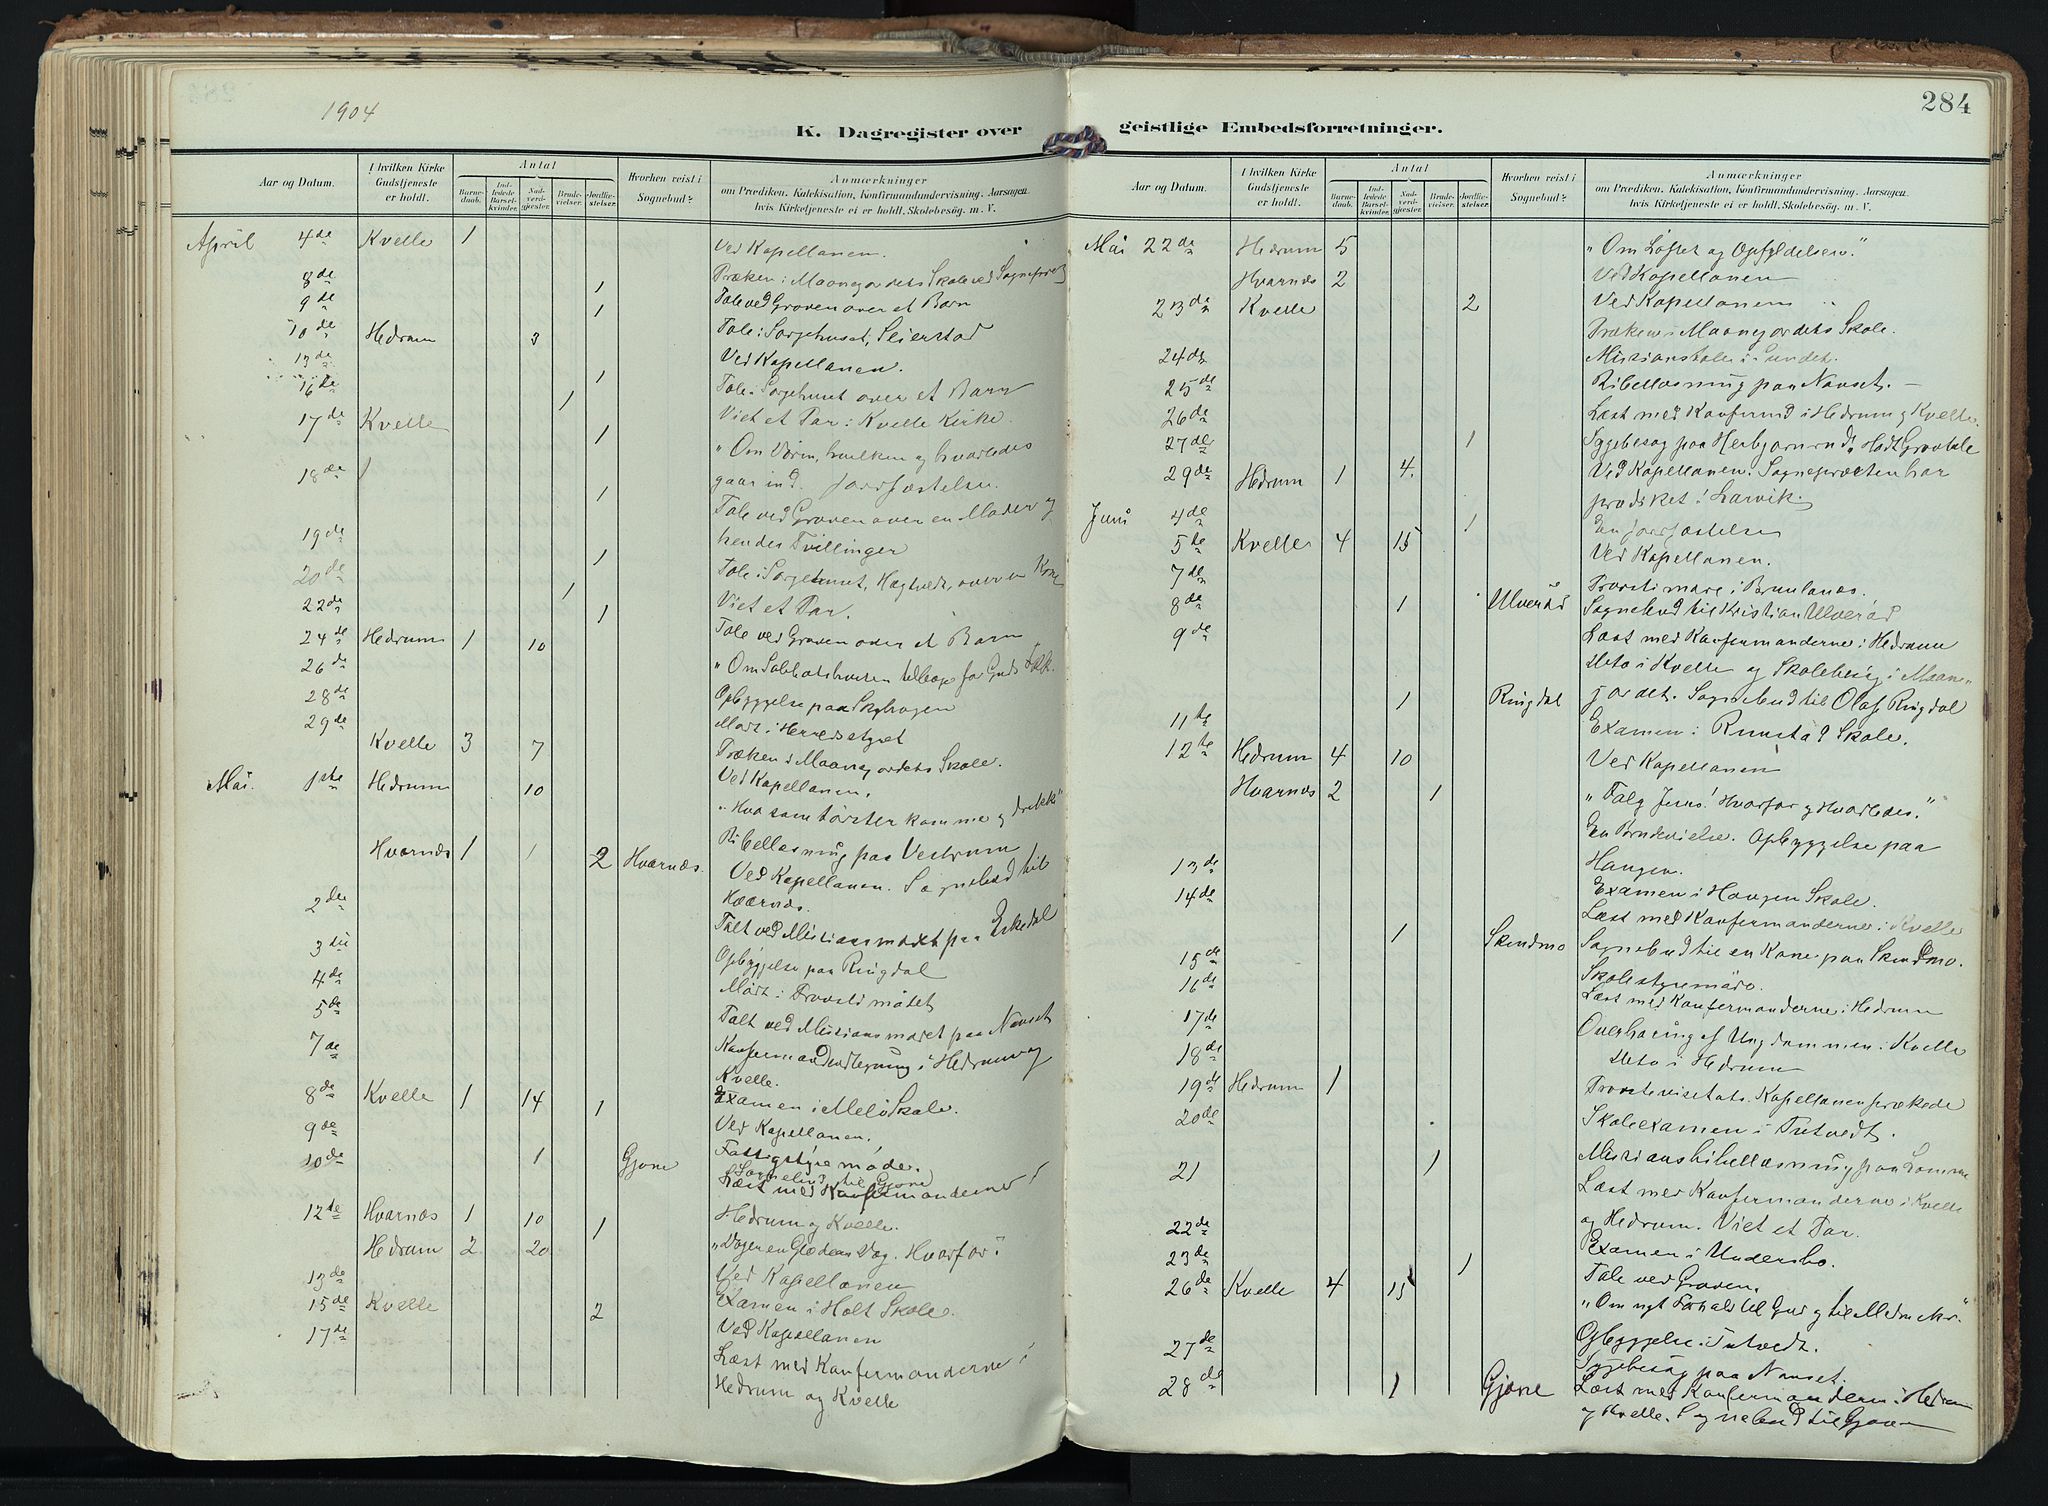 1904
284
K. Dagregister over geistlige Embedsforretninger.
Aar og Datum.
I hvilken Kirke Gudstjeneste er holdt.
Antal
Barnedaab.
Indledede Barselkvinder.
Nadverdgjester.
Brudevielser.
Jordfæstelser.
Hvorhen reist i Sognebud?
Anmærkninger
om Prædiken. Katekisation. Konfirmandundervisning. Aarsagen,
hvis Kirketjeneste ei er holdt. Skolebesøg. m. V.
April 4de Kvelle 1
Ved Kapellanen.
8de
Præken i Maanejordets Skole ved Sogneprest
9de 1
Tale ved Graven over et Barn
10de Hedrum 3 1
Tale i Sørgehuset, Seierstad
13de
Ved Kapellanen.
16de 1
Tale i Sørgehuset over et Barn
17de Kvelle 1
Viet et Par i Kvelle Kirke.
1
"Om Døren, hvilken og hvorledes
18de
gaar ind. Jordfæstelse.
1
Tale ved Graven over en Moder og
19de
hendes Tvillinger
20de 1
Tale i Sørgehuset, Hagtvedt, over en Kone
22de 1
Viet et Par.
24de Hedrum 1 10 1
Tale ved Graven over et Barn
26de
"Om Sabbatshvilen tilbage for Guds Folk.
28de
Opbyggelse paa Skyhagen
29de
Møde i Herredsstyret
Kvelle 3 7
Præken i Maanejordets Skole.
Mai. 1ste Hedrum 10
Ved Kapellanen.
"Hvo som tørster komme og drikk"
Bibellæsning paa Vestrum
Hvarnæs 1 1 2 Hvarnæs.
Ved Kapellanen. Sognebud til
2den
Hvarnæs.
Talt ved Missionsmødet paa Eskedal
3die
Opbyggelse paa Ringdal
4de
Mødt i Provstimødet
5de
Talt ved Missionsmødet paa Nanset
7de
Konfirmandindtegning i Hedrum og
Kvelle.
8de Kvelle 1 14 1
Examen i Melø Skole.
9de
Ved Kapellanen.
10de 1 Gjone
Fattigstyremøde.
Sognebud til Gjone
Læst med Konfirmanderne i
12te Hvarnæs 1 10 1
Hedrum og Kvelle.
Hedrum 2 20
"Dagen en Glædens Dag. Hvorfor?
13de
Ved Kapellanen
15de Kvelle 2
Examen i Holt Skole.
17de
Ved Kapellanen
Læst med Konfirmanderne i
Hedrum og Kvelle
Mai 22de Hedrum 5
"Om Løftet og Opfyldelsen."
Hvarnæs 2
Ved Kapellanen
23de Kvelle 2
Ved Kapellanen
Præken i Maanejordets Skole.
24de
Missionstale i Sundet.
25de
Bibellæsning paa Nanset.
26de
Læst med Konfirmand i Hedrum og Kvelle.
27de 1
29de Hedrum 1 4
Ved Kapellanen. Sognepræsten har
prædiket i Larvik.
Juni 4de 1
En Jordfæstelse
5de Kvelle 4 15
Ved Kapellanen.
7de
Provstimøde i Brunlanæs.
8de 1 Ulveråd
Sognebud til Kristian Ulveråd
9de
Læst med Konfirmanderne i Hedrum
Dito i Kvelle og Skolebesøg i Maane-
1 Ringdal
jordet. Sognebud til Olaf Ringdal
11te
Examen i Rimstad Skole.
12te Hedrum 4 10
Ved Kapellanen
Hvarnæs 2 1
"Følg Jesus! Hvorfor og Hvorledes."
En Brudevielse. Opbyggelse paa
13de
Haugen.
14de
Examen i Haugen Skole.
Læst med Konfirmanderne i Kvelle
1 Skindmo
15de
Sognebud til en Kone paa Skindmo.
16de
Skolestyremøde.
Læst med Konfirmanderne i Hedrum
17de
Overhøring af Ungdommen i Kvelle
18de
Dito i Hedrum
19de Hedrum 1
Provstevisitats. Kapellanen prækede
20de
Skoleexamen i Tutvedt.
21 1
Missionsbibellæsning paa
Læst med Konfirmanderne i Kvelle
22de
og Hedrum. Viet et Par.
23de
Examen i Undersbo.
1
Tale ved Graven.
26de Kvelle 4 15
"Om nyt Forhold til Gud og til Mennesker."
27de
Opbyggelse i Tutvedt.
Sygebesøg paa Nanset.
28de 1 Gjone
Læst med Konfirmanderne i Hedrum
og Kvelle. Sognebud til Gjone